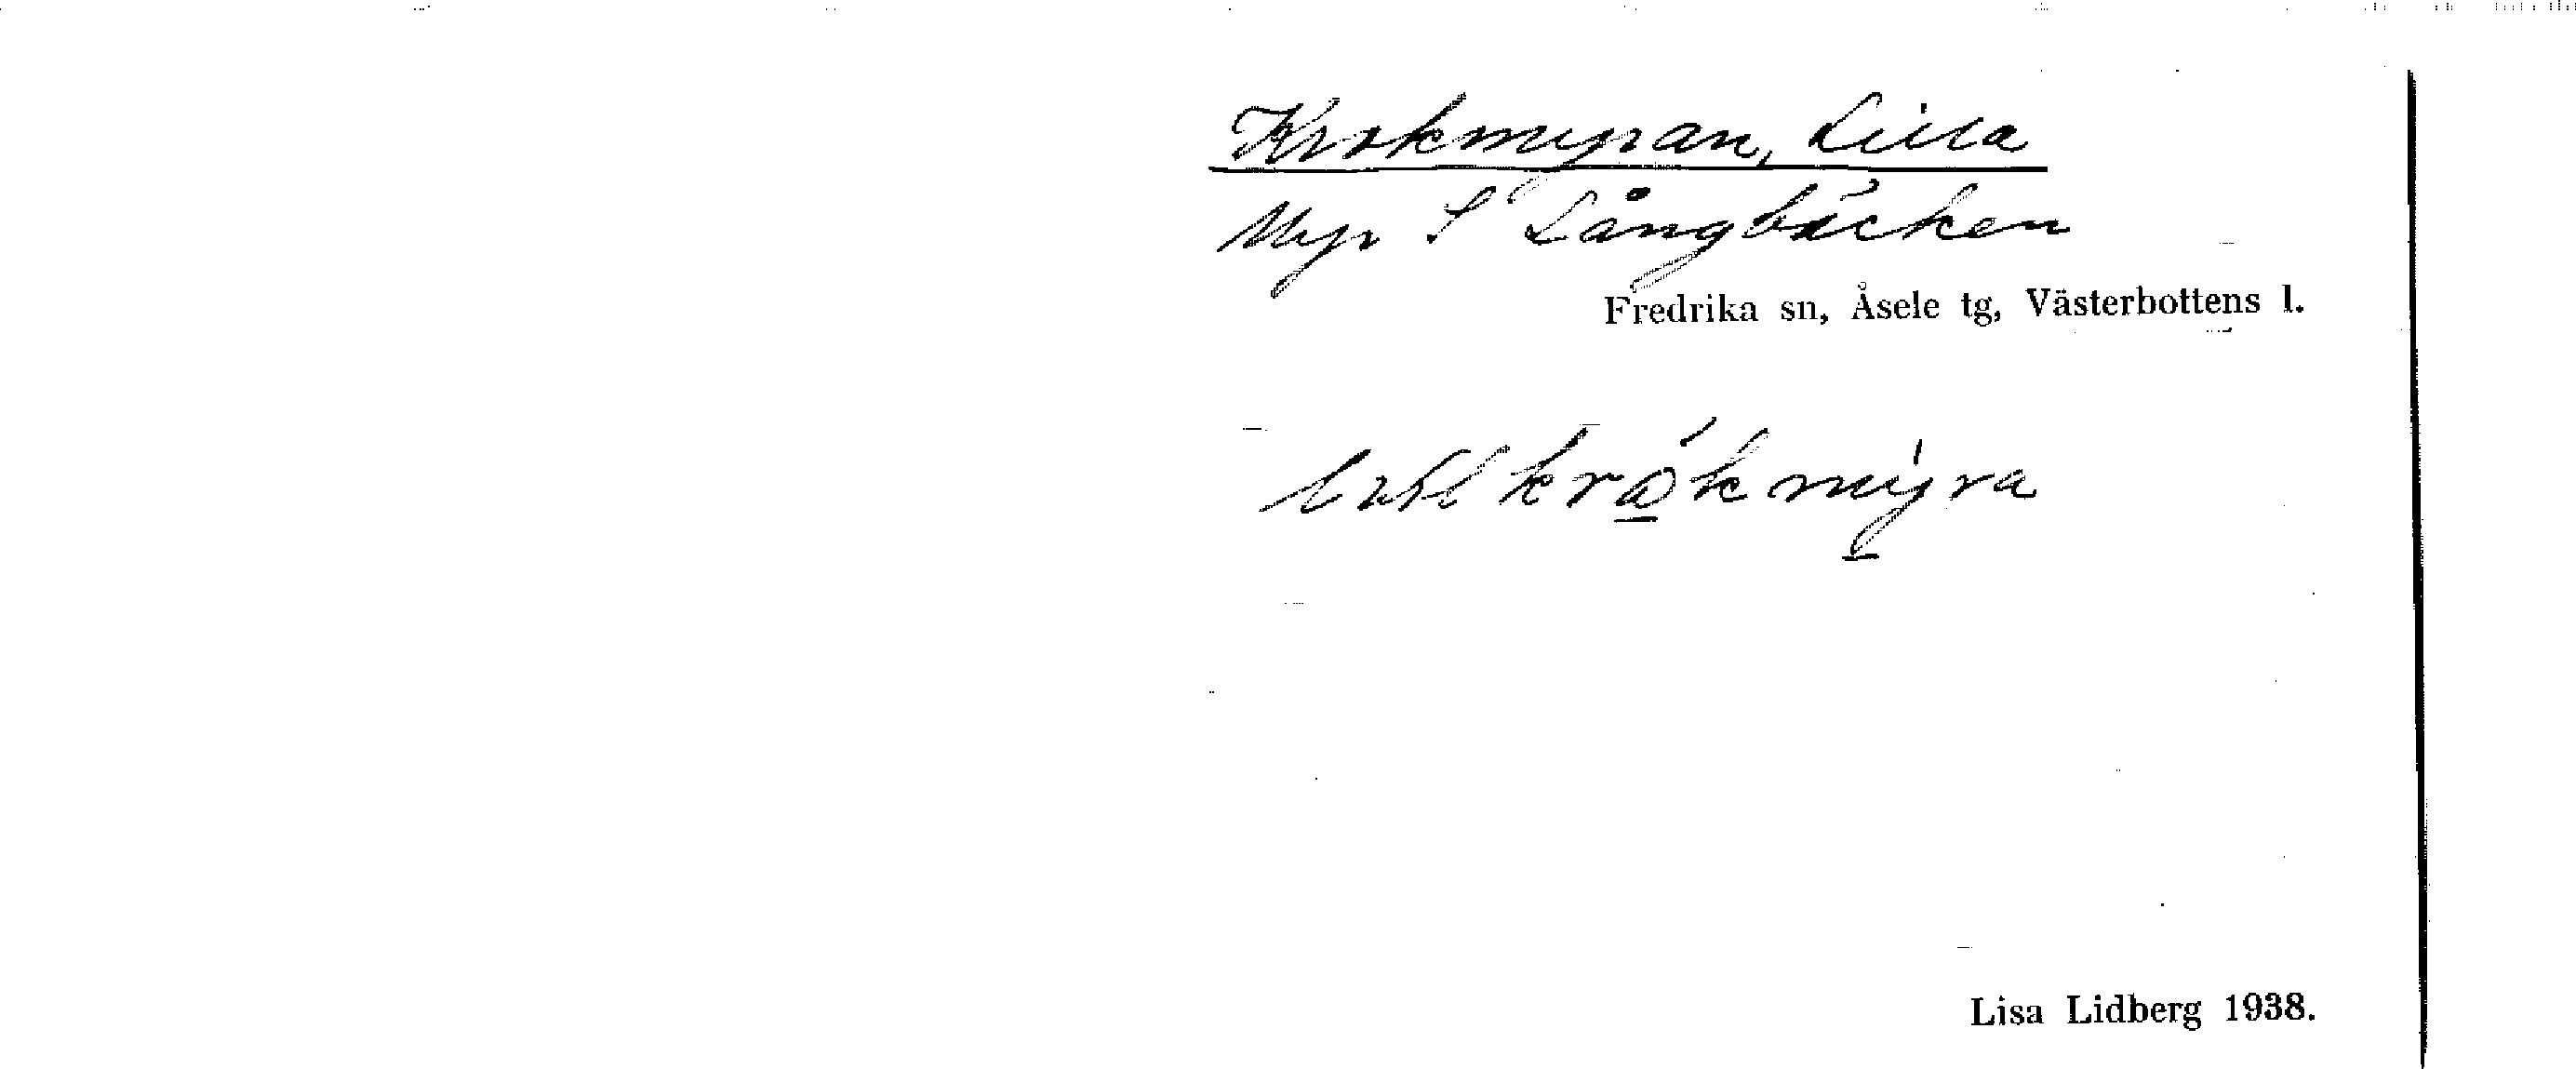 Krokmyran, Lilla
Myr S Långbäcken
Fredrika sn, Åsele tg, Västerbottens l.
kråkmyra
Lisa Lidberg 1938.